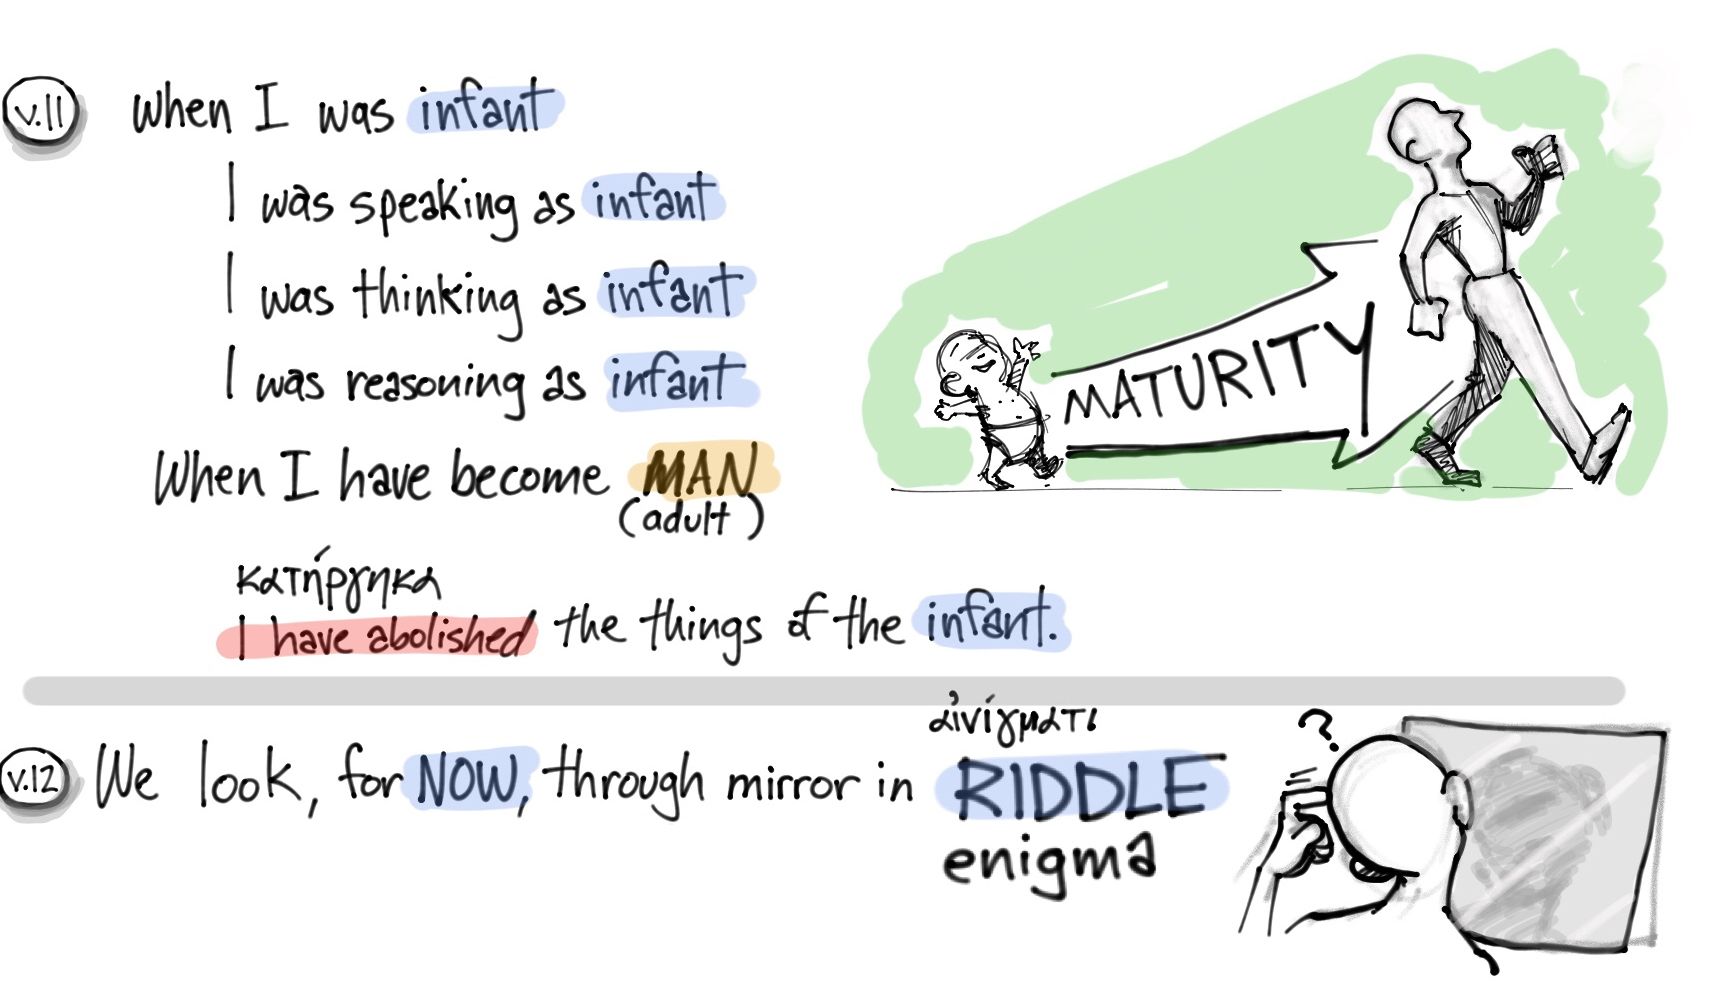 v.11 When I was infant
I was speaking as infant
I was thinking as infant
I was reasoning as infant
When I have become MAN
(adult)
κατήργηκα
I have abolished the things of the infant.
MATURITY
αἰνίγματι
v.12 We look, for NOW, through mirror in RIDDLE
enigma
?